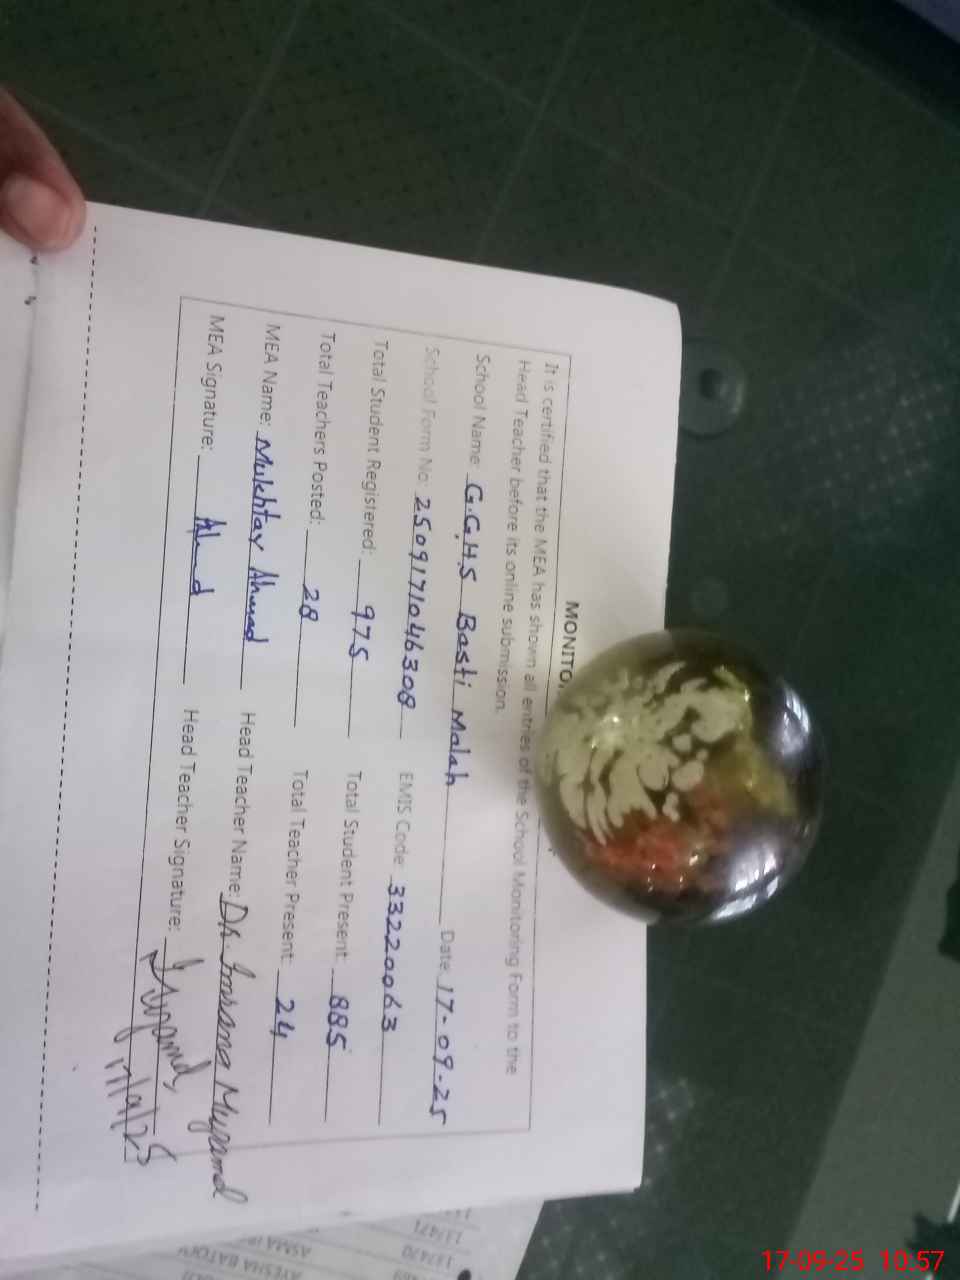 MONITO
It is certified that the MEA has shown all entries of the School Monitoring Form to the
Head Teacher before its online submission.
School Name: G.G.H.S Basti Malah Date: 17-09-25
School Form No: 2509171046308 EMIS Code: 33220063
Total Student Registered: 975 Total Student Present: 885
Total Teachers Posted: 28 Total Teacher Present: 24
MEA Name: Mukhtar Ahmad Head Teacher Name: Dr.
MEA Signature: Head Teacher Signature:
17/9/25
137471
137470
ASMA
AYESHA BATOOL
17-09-25 10:57